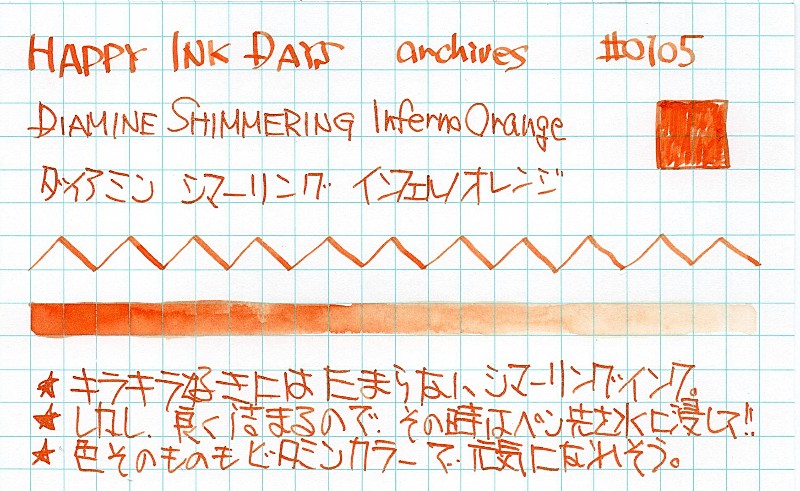 HAPPY INK DAYS archives #0105
DIAMINE SHIMMERING Inferno Orange
ダイアミン シマーリング インフェルノオレンジ
★ キラキラ好きにはたまらない、シマーリングインク。
★ しかし、良く詰まるので、その時はペン先を水に浸して!!
★ 色そのものもビタミンカラーで元気になれそう。